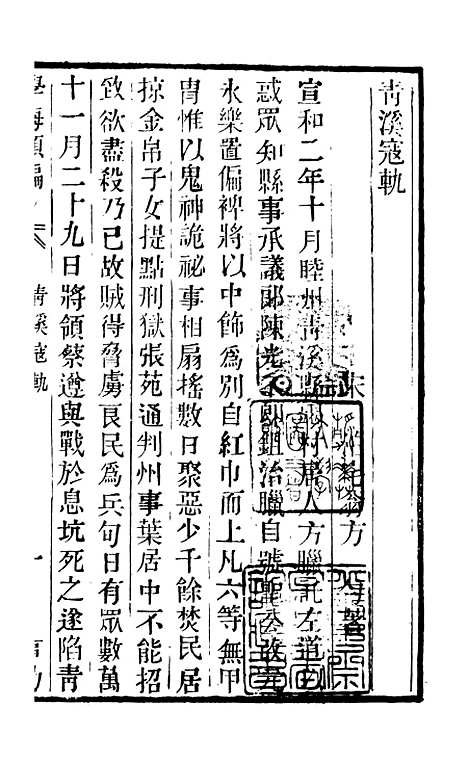 青溪寇軌
宋 方
宣和二年十月睦州青溪縣 村居人方臘託左道以
惑眾知縣事承議郎陳光不即鉏治臘自號聖公改元
永樂置偏裨將以巾飾為別自紅巾而上凡六等無甲
胄惟以鬼神詭祕事相扇搖數日聚惡少千餘焚民居
掠金帛子女提點刑獄張苑通判州事葉居中不能招
致欲盡殺乃已故賊得脅虜良民為兵旬日有眾數萬
十一月二十九日將領蔡遵與戰於息坑死之遂陷青
學海類編
青溪寇軌
一